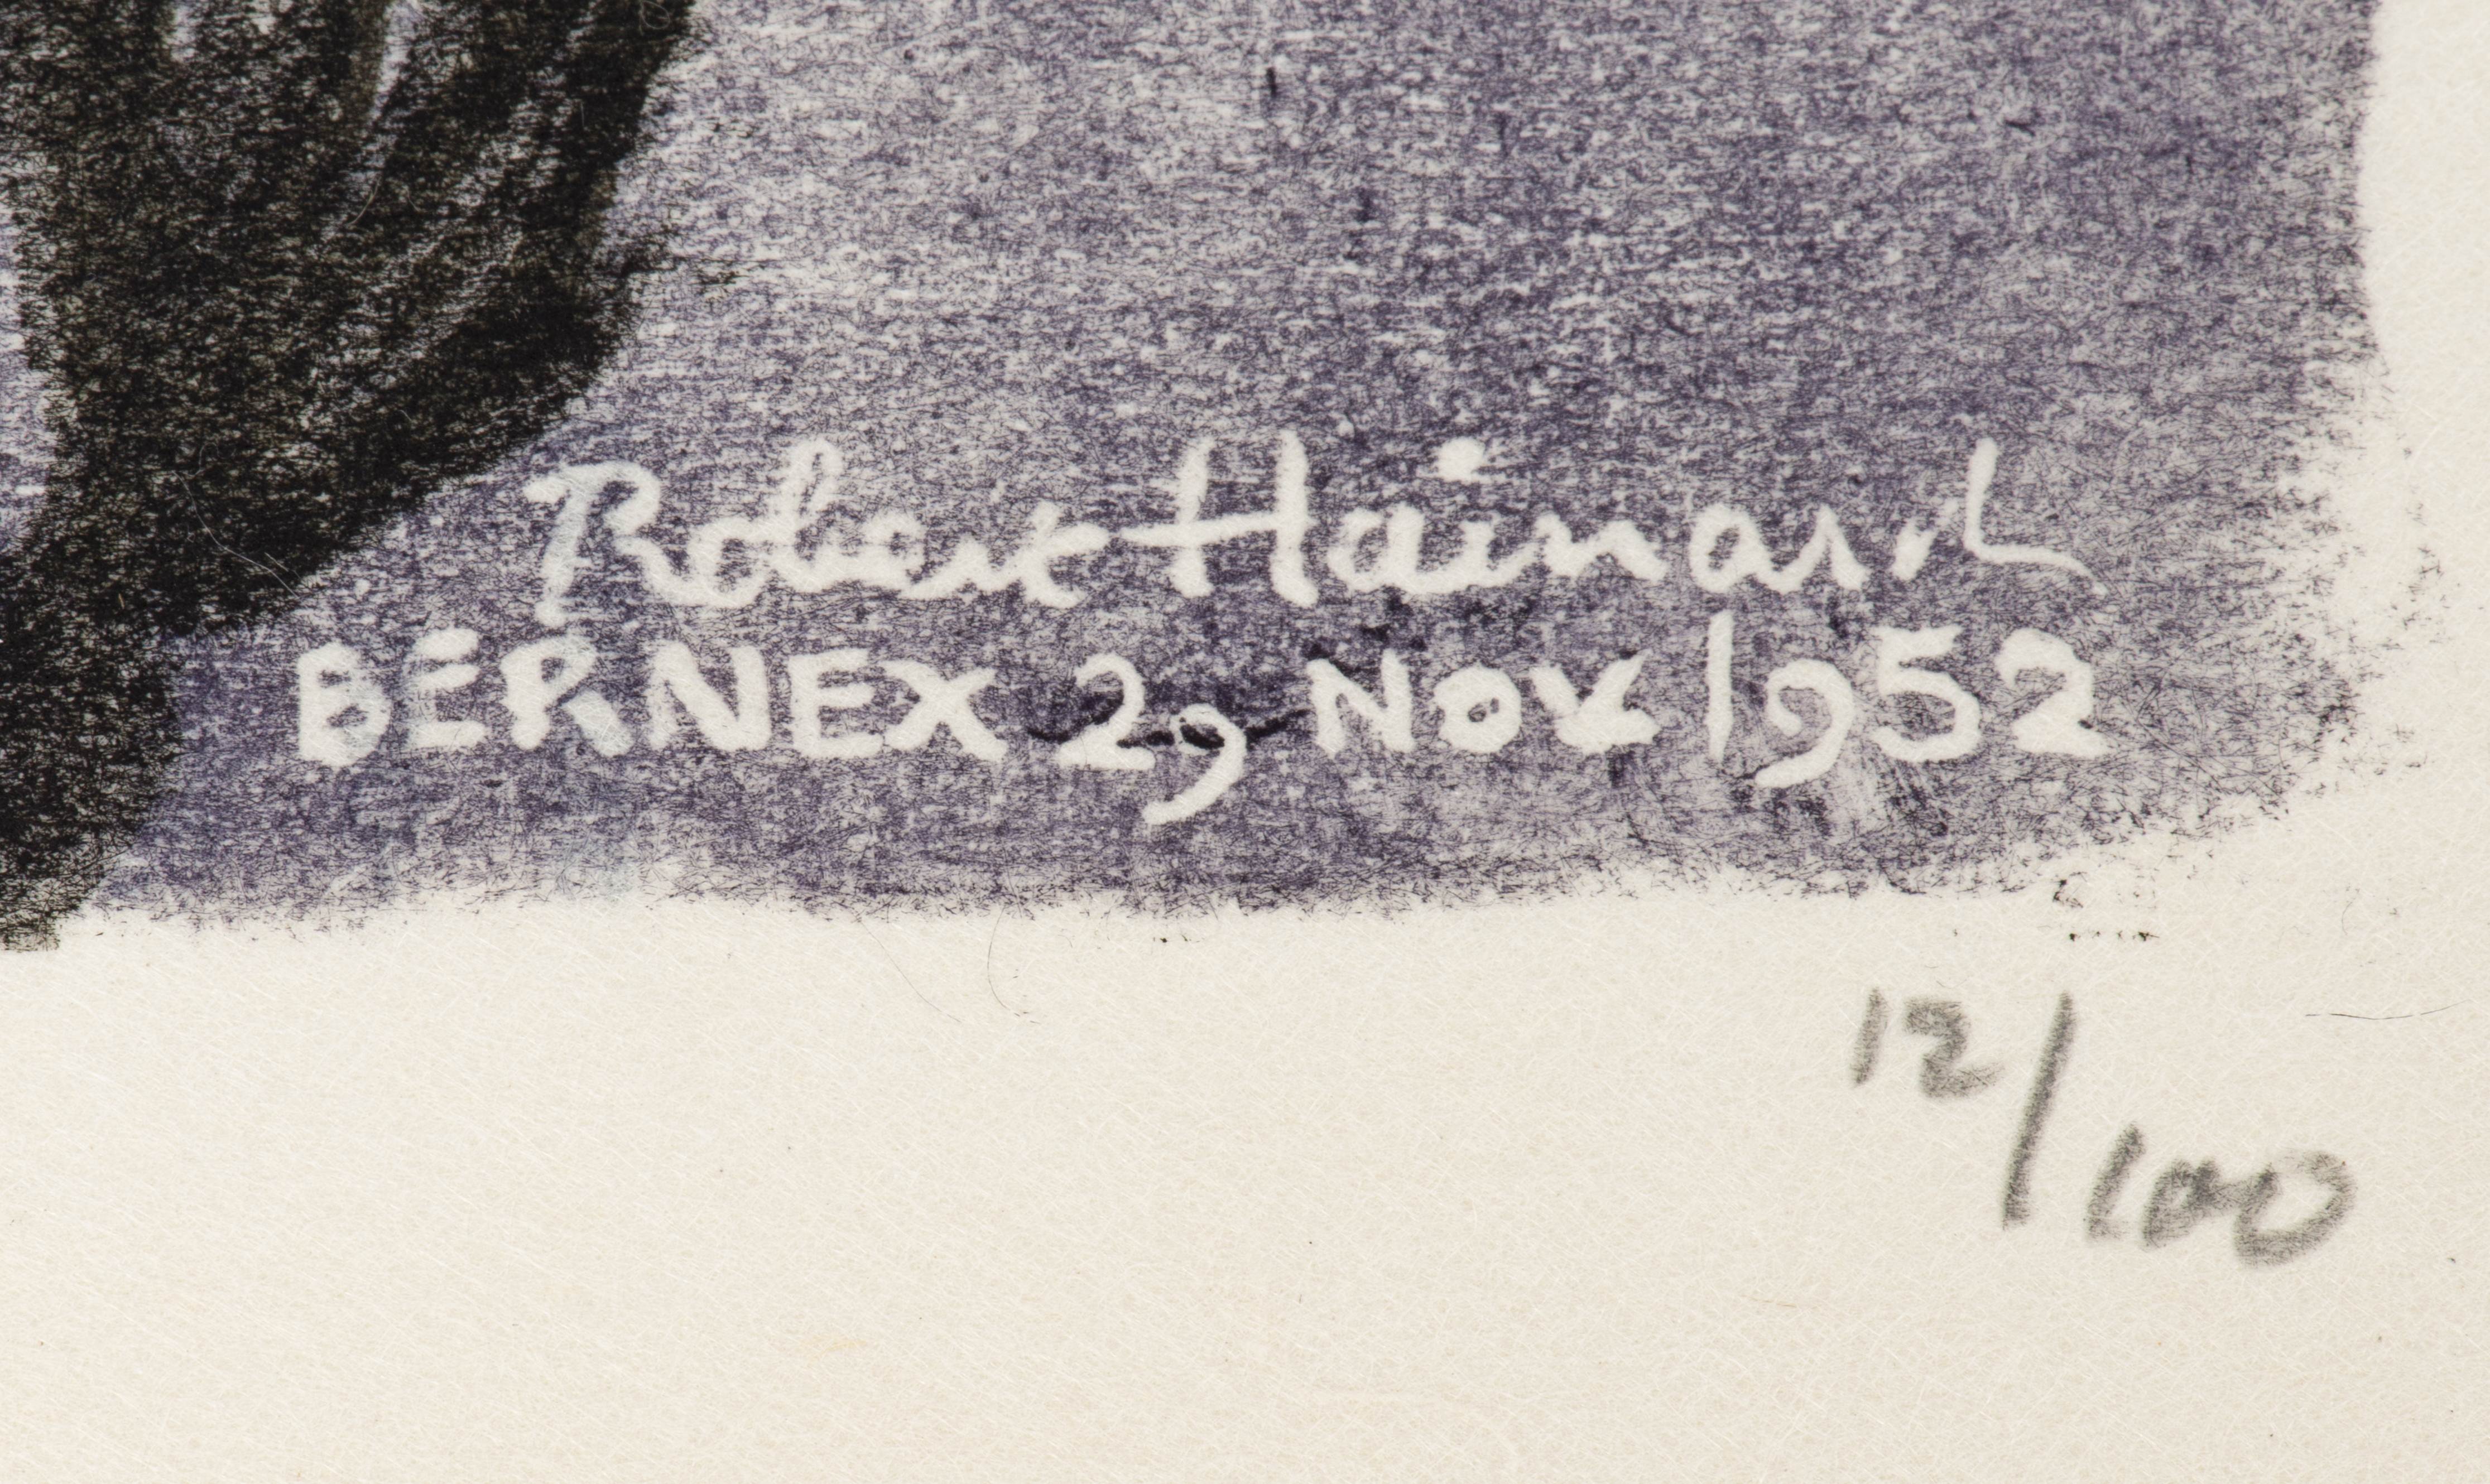 Robert Hainard
BERNEX 29 NOV 1952
12/100